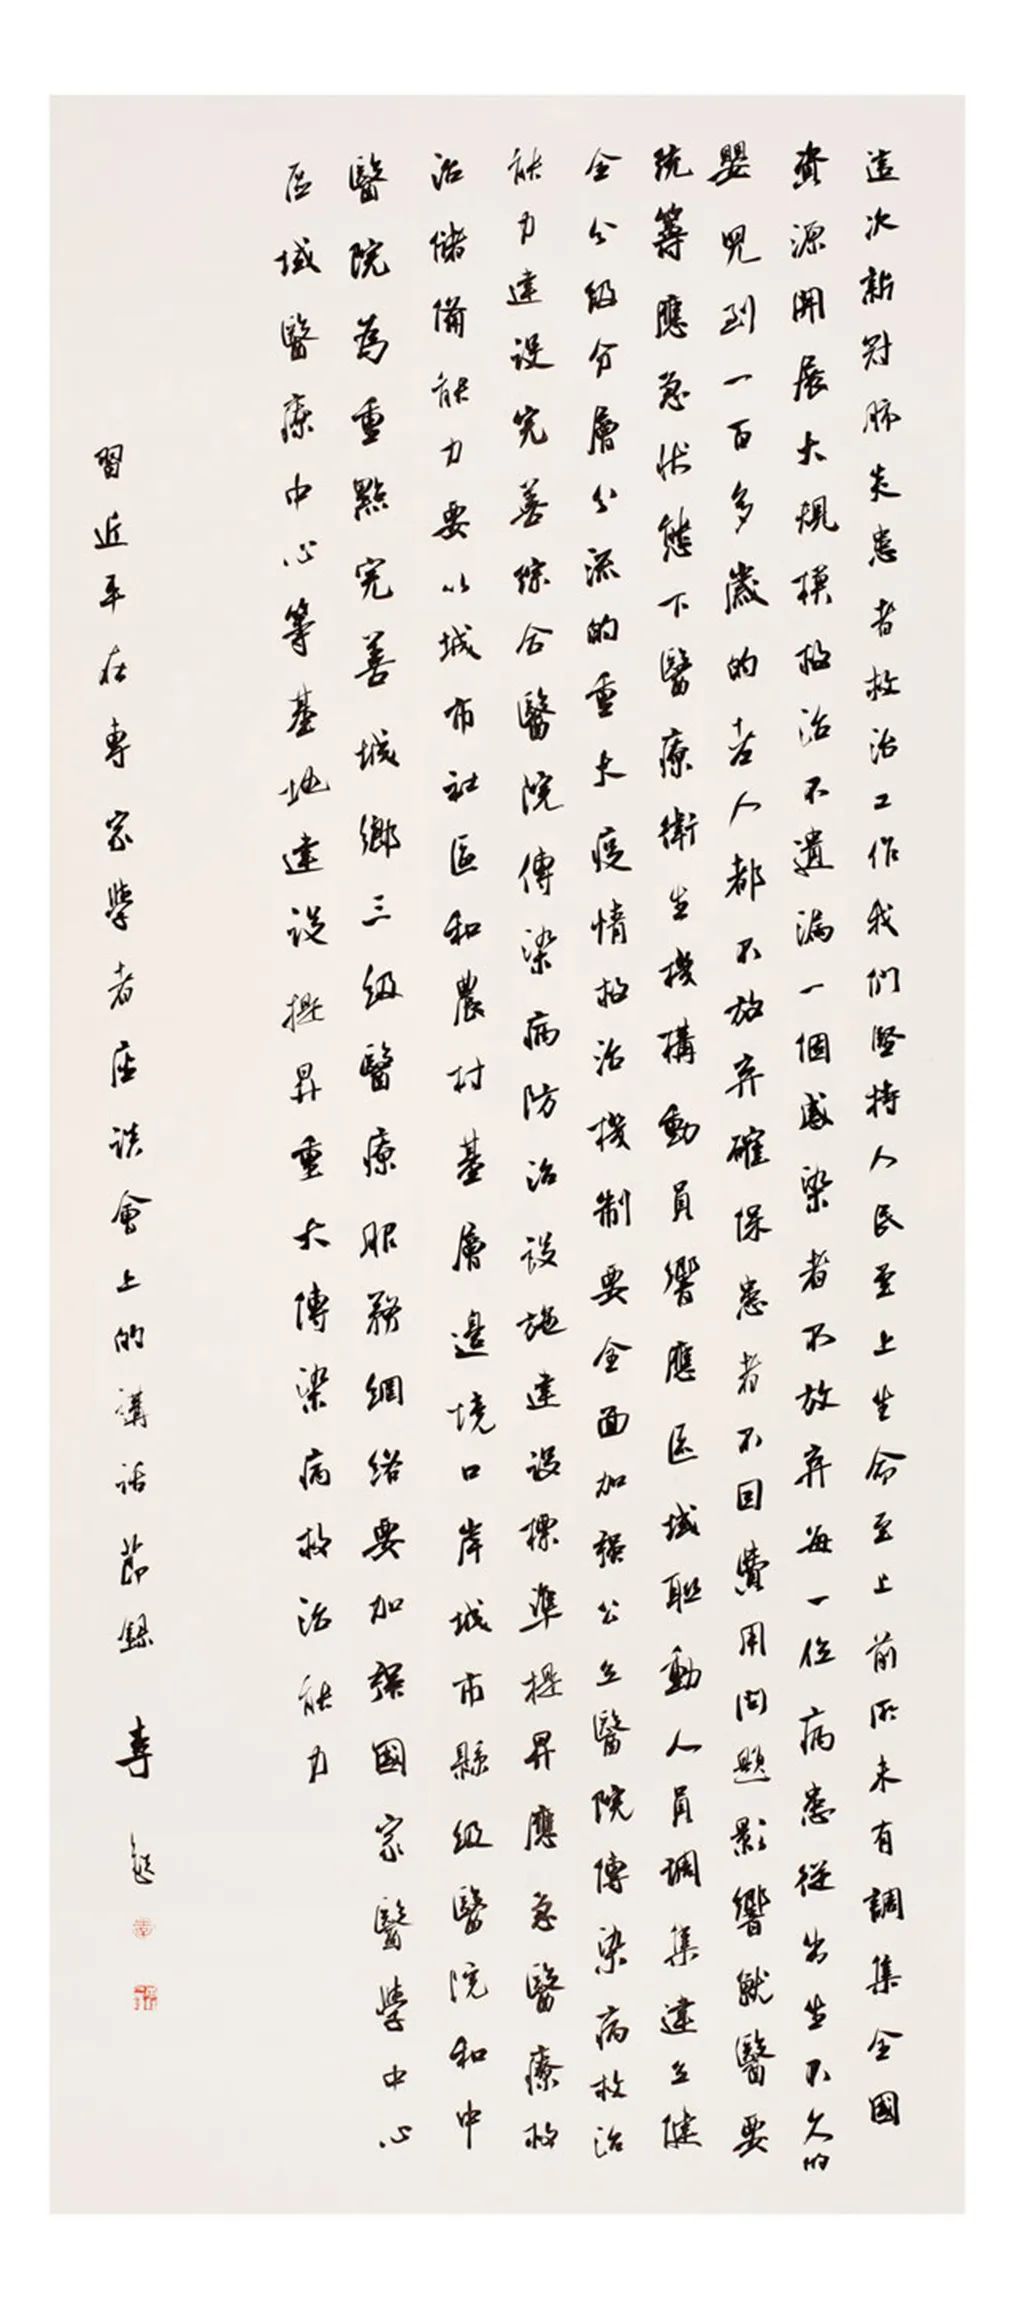 這次新冠肺炎患者救治工作我們堅持人民至上生命至上前所未有調集全國
資源開展大規模救治不遺漏一個感染者不放弃每一位病患從出生不久的
嬰兒到一百多歲的老人都不放弃確保患者不因費用問題影響就醫要
統筹應急狀態下醫療衛生機構動員響應區域聯動人員調集建立健
全分級分層分流的重大疫情救治機制要全面加强公立醫院傳染病救治
能力建設完善綜合醫院傳染病防治設施建設標準提昇應急醫療救
治儲備能力要以城市社區和農村基層邊境口岸城市縣級醫院和中
醫院為重點完善城鄉三級醫療服務網絡要加强國家醫學中心
區域醫療中心等基地建設提昇重大傳染病救治能力
習近平在專家學者座談會上的講話節錄 李